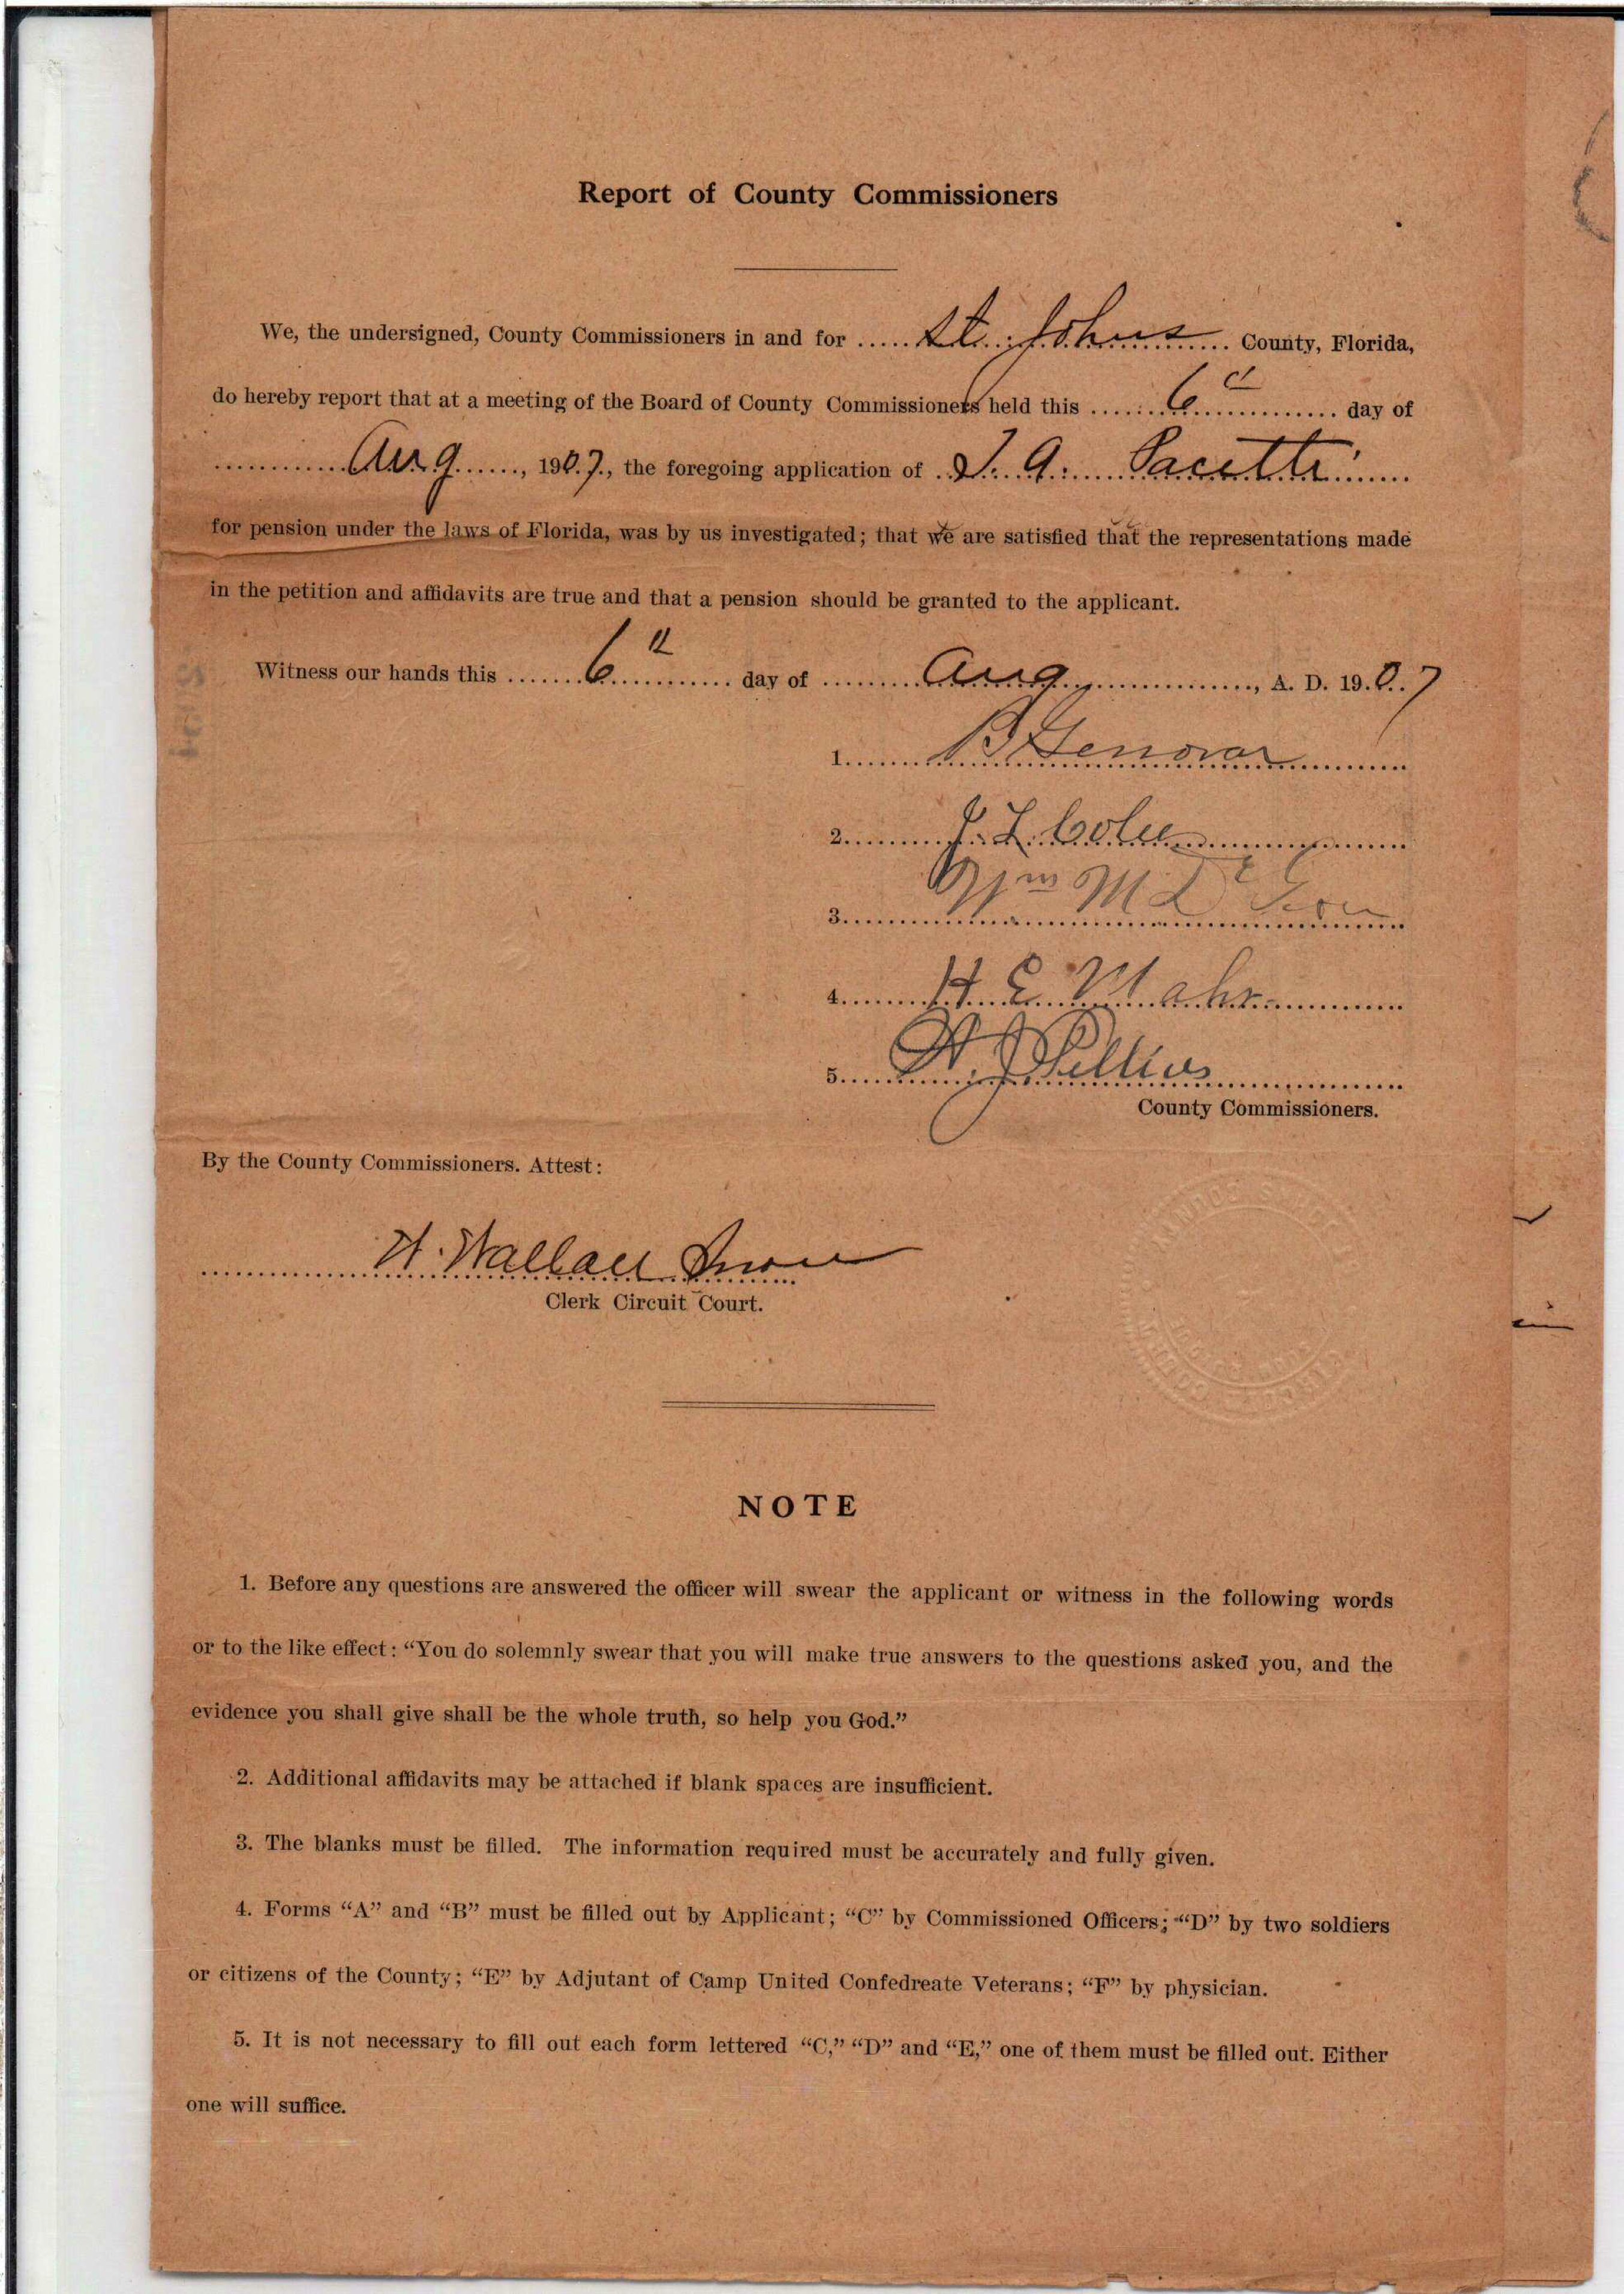 Report of County Commissioners
We, the undersigned, County Commissioners in and for St. Johns County, Florida,
do hereby report that at a meeting of the Board of County Commissioners held this 6th day of
Aug, 1907, the foregoing application of A. Pacetti
for pension under the laws of Florida, was by us investigated; that we are satisfied that the representations made
in the petition and affidavits are true and that a pension should be granted to the applicant.
Witness our hands this 6th day of Aug, A. D. 1907
1. B Genovar
2.
3. Wm
4. H. E. Mahr
5.
County Commissioners.
By the County Commissioners. Attest:
Wallace Snow
Clerk Circuit Court.
NOTE
1. Before any questions are answered the officer will swear the applicant or witness in the following words
or to the like effect: “You do solemnly swear that you will make true answers to the questions asked you, and the
evidence you shall give shall be the whole truth, so help you God.”
2. Additional affidavits may be attached if blank spaces are insufficient.
3. The blanks must be filled. The information required must be accurately and fully given.
4. Forms “A” and “B” must be filled out by Applicant; “C” by Commissioned Officers; “D” by two soldiers
or citizens of the County; “E” by Adjutant of Camp United Confedreate Veterans; “F” by physician.
5. It is not necessary to fill out each form lettered “C,” “D” and “E,” one of them must be filled out. Either
one will suffice.